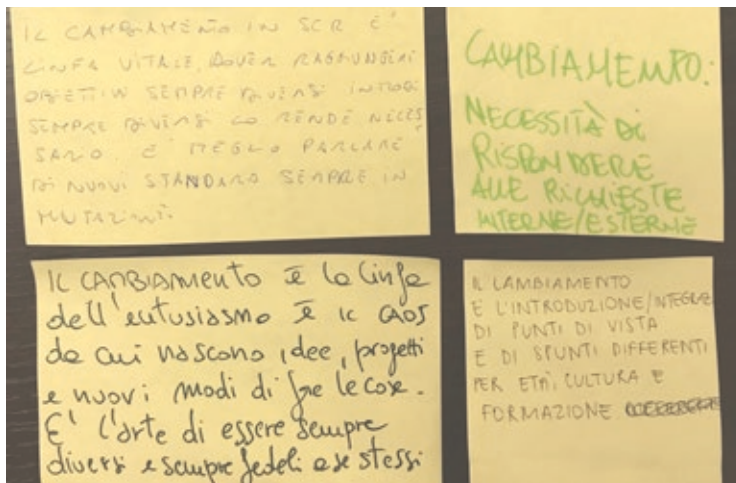 IL CAMBIAMENTO IN SCR E'
LINFA VITALE. DOVER RAGGIUNGERE
OBIETTIVI SEMPRE DIVERSI INTRODI
SEMPRE DIVERSI LO RENDE NECES
SARIO. E' MEGLIO PARLARE
DI NUOVI STANDARD SEMPRE IN
MUTAZIONE.
CAMBIAMENTO:
NECESSITÀ DI
RISPONDERE
ALLE RICHIESTE
INTERNE/ESTERNE
IL CAMBIAMENTO è la linfa
dell'entusiasmo è il CAOS
da cui nascono idee, progetti
e nuovi modi di fare le cose.
E' l'arte di essere sempre
diversi e sempre fedeli a se stessi
IL CAMBIAMENTO
E L'INTRODUZIONE/INTEGRAZ
DI PUNTI DI VISTA
E DI SPUNTI DIFFERENTI
PER ETÀ, CULTURA E
FORMAZIONE